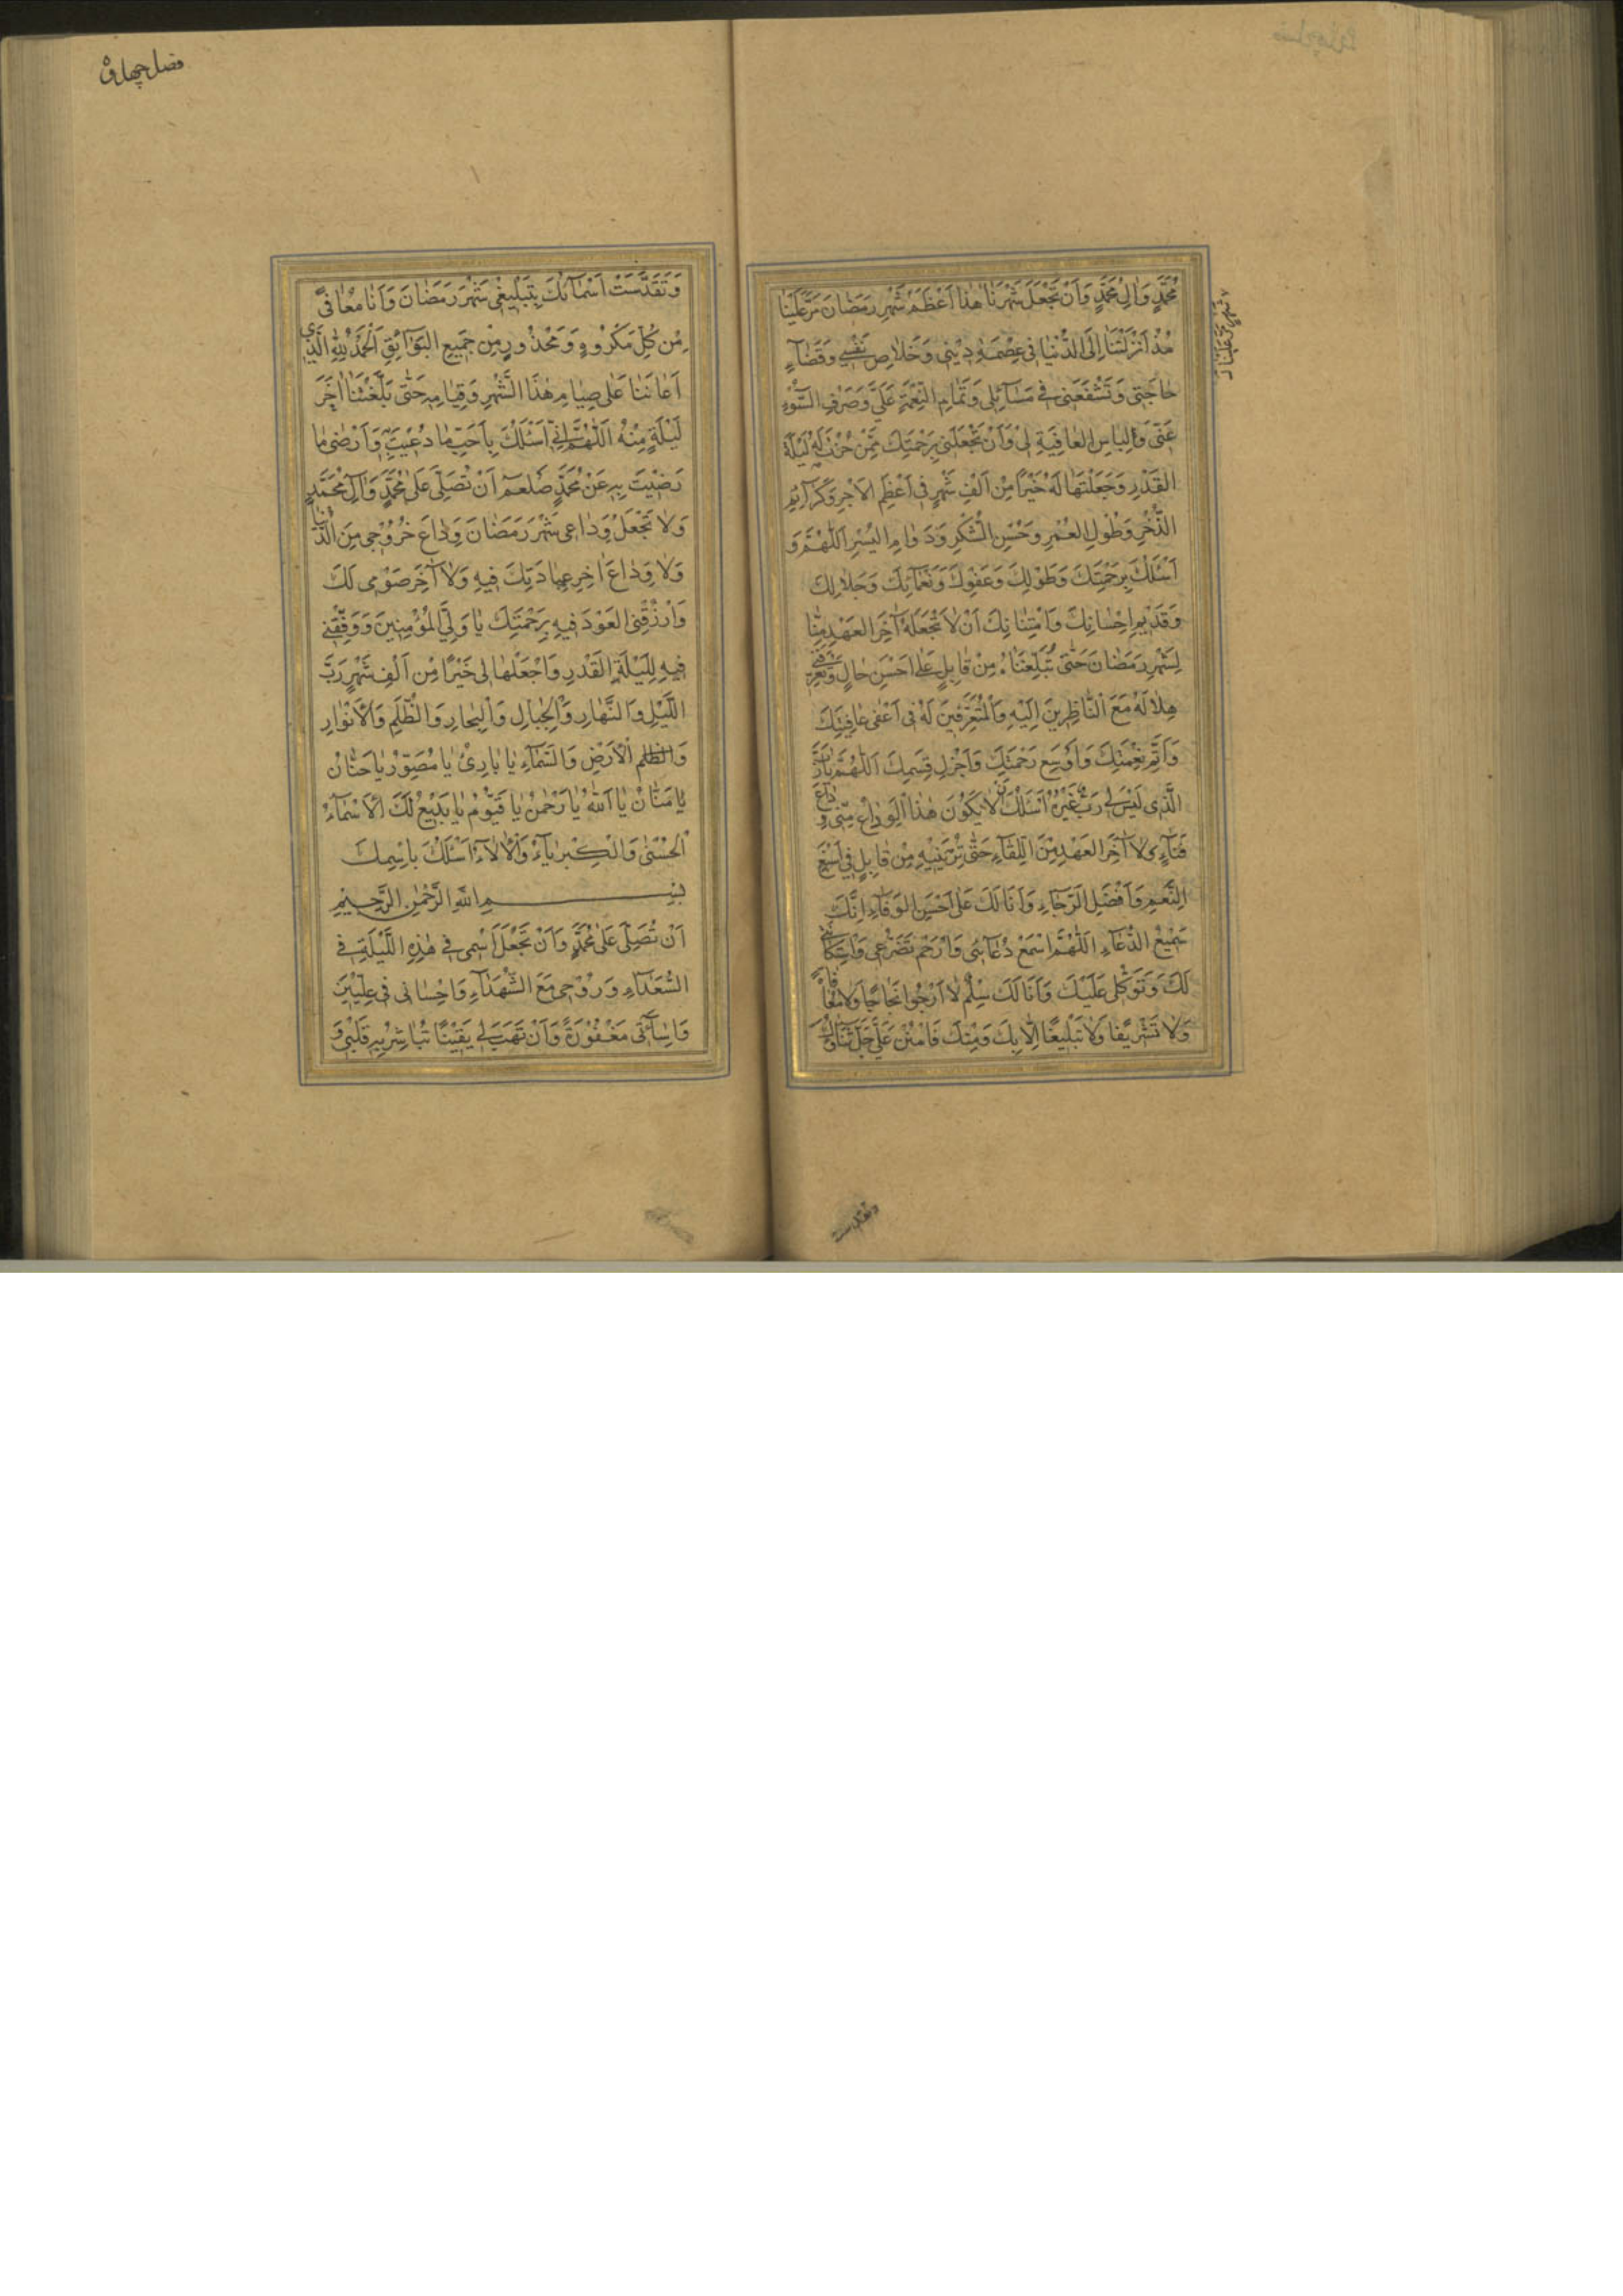 مُحَمَّدٍ وَاٰلِ مُحَمَّدٍ وَاَنْ تَجْعَلَ شَهْرَنَا هٰذَا اَعْظَمَ شَهْرِ رَمَضٰانَ مَرَّ عَلَيْنٰا
مُذْ اَنْزَلْتَنٰا اِلَى الدُّنْيٰا فِى عِصْمَةِ دِيْنِى وَخَلٰاصِ نَفْسِى وَقَضٰآءِ
حٰاجَتِى وَتُشَفِّعَنِى فِى مَسٰآئِلِى وَتَمٰامِ النِّعْمَةِ عَلَىَّ وَصَرْفِ السُّوْءِ
عَنِّى وَلِبٰاسِ الْعٰافِيَةِ لِىْ وَاَنْ تَجْعَلَنِى بِرَحْمَتِكَ مِمَّنْ حُزْتَ لَهُ لَيْلَةَ
الْقَدْرِ وَجَعَلْتَهٰا لَهُ خَيْرًا مِنْ اَلْفِ شَهْرٍ فِى اَعْظَمِ الْاَجْرِ وَكَرَآئِمِ
الذُّخْرِ وَطُوْلِ الْعُمْرِ وَحُسْنِ الشُّكْرِ وَدَوٰامِ الْيُسْرِ اَللّٰهُمَّ وَ
اَسْئَلُكَ بِرَحْمَتِكَ وَطَوْلِكَ وَعَفْوِكَ وَنَعْمٰآئِكَ وَجَلٰالِكَ
وَقَدِيْمِ اِحْسٰانِكَ وَامْتِنٰانِكَ اَنْ لٰا تَجْعَلَهُ اٰخِرَ الْعَهْدِ مِنّٰا
لِشَهْرِ رَمَضٰانَ حَتّٰى تُبَلِّغَنٰاهُ مِنْ قٰابِلٍ عَلٰى اَحْسَنِ حٰالٍ وَتُعَرِّفَنِى
هِلٰالَهُ مَعَ النّٰاظِرِيْنَ اِلَيْهِ وَالْمُتَعَرِّفِيْنَ لَهُ فِى اَعْفٰى عٰافِيَتِكَ
وَاَتَمِّ نِعْمَتِكَ وَاَوْسَعِ رَحْمَتِكَ وَاَجْزَلِ قِسَمِكَ اَللّٰهُمَّ يٰا رَبِّ
الَّذِى لَيْسَ لِى رَبٌّ غَيْرُهُ اَسْئَلُكَ اَنْ لٰا يَكُوْنَ هٰذَا الْوَدٰاعُ مِنِّى وَدٰاعَ
فَنٰآءٍ وَلٰا اٰخِرَ الْعَهْدِ مِنَ اللِّقٰآءِ حَتّٰى تُرِيَنِيْهِ مِنْ قٰابِلٍ فِى اَسْبَغِ
النِّعَمِ وَاَفْضَلِ الرَّجٰاءِ وَاَنَا لَكَ عَلٰى اَحْسَنِ الْوَفٰاءِ اِنَّكَ
سَمِيْعُ الدُّعٰآءِ اَللّٰهُمَّ اسْمَعْ دُعٰآئِى وَارْحَمْ تَضَرُّعِى وَاسْتِكٰانَتِى
لَكَ وَتَوَكُّلِى عَلَيْكَ وَاَنَا لَكَ سِلْمٌ لٰا اَرْجُوا نَجٰاحًا وَلٰا مُعٰافٰاةً
وَلٰا تَشْرِيْفًا وَلٰا تَبْلِيْغًا اِلّٰا بِكَ وَمِنْكَ فَامْنُنْ عَلَىَّ جَلَّ ثَنٰاؤُكَ
وتقدست
فصل چهارم
وَتَقَدَّسَتْ اَسْمٰآئُكَ بِتَبْلِيْغِى شَهْرَ رَمَضٰانَ وَاَنَا مُعٰافًى
مِنْ كُلِّ مَكْرُوْهٍ وَمَحْذُوْرٍ مِنْ جَمِيْعِ الْبَوٰآئِقِ اَلْحَمْدُ لِلّٰهِ الَّذِى
اَعٰانَنٰا عَلٰى صِيٰامِ هٰذَا الشَّهْرِ وَقِيٰامِهِ حَتّٰى بَلَّغَنَا اٰخِرَ
لَيْلَةٍ مِنْهُ اَللّٰهُمَّ اِنِّى اَسْئَلُكَ بِاَحَبِّ مٰا دُعِيْتَ بِهِ وَاَرْضٰى مٰا
رَضِيْتَ بِهِ عَنْ مُحَمَّدٍ صلعم اَنْ تُصَلِّىَ عَلٰى مُحَمَّدٍ وَاٰلِ مُحَمَّدٍ
وَلٰا تَجْعَلْ وَدٰاعِى شَهْرَ رَمَضٰانَ وَدٰاعَ خُرُوْجِى مِنَ الدُّنْيٰا
وَلٰا وَدٰاعَ اٰخِرِ عِبٰادَتِكَ فِيْهِ وَلٰا اٰخِرَ صَوْمِى لَكَ
وَارْزُقْنِى الْعَوْدَ فِيْهِ بِرَحْمَتِكَ يٰا وَلِىَّ الْمُؤْمِنِيْنَ وَوَفِّقْنِى
فِيْهِ لِلَيْلَةِ الْقَدْرِ وَاجْعَلْهٰا لِى خَيْرًا مِنْ اَلْفِ شَهْرٍ رَبَّ
اللَّيْلِ وَالنَّهٰارِ وَالْجِبٰالِ وَالْبِحٰارِ وَالظُّلَمِ وَالْاَنْوٰارِ
وَالْاَرْضِ وَالسَّمٰآءِ يٰا بٰارِئُ يٰا مُصَوِّرُ يٰا حَنّٰانُ
يٰا مَنّٰانُ يٰا اَللّٰهُ يٰا رَحْمٰنُ يٰا قَيُّوْمُ يٰا بَدِيْعُ لَكَ الْاَسْمٰآءُ
الْحُسْنٰى وَالْكِبْرِيٰآءُ وَالْاٰلٰاءُ اَسْئَلُكَ بِاسْمِكَ
بِسْمِ اللّٰهِ الرَّحْمٰنِ الرَّحِيْمِ
اَنْ تُصَلِّىَ عَلٰى مُحَمَّدٍ وَاَنْ تَجْعَلَ اسْمِى فِى هٰذِهِ اللَّيْلَةِ فِى
السُّعَدٰآءِ وَرُوْحِى مَعَ الشُّهَدٰآءِ وَاِحْسٰانِى فِى عِلِّيِّيْنَ
وَاِسٰآئَتِى مَغْفُوْرَةً وَاَنْ تَهَبَ لِى يَقِيْنًا تُبٰاشِرُ بِهِ قَلْبِى وَ